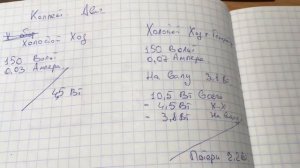 Коллей Двл
Холостой Ход
150 Вольт
0,03 Ампера
4,5 Вт
Холостой Ход + Генерат
150 Вольт
0,07 Ампера
На Валу 3,8 Вт
10,5 Вт Всего
- 4,5 Вт Х.Х
- 3,8 Вт На Валу
Потери 2.2 Вт